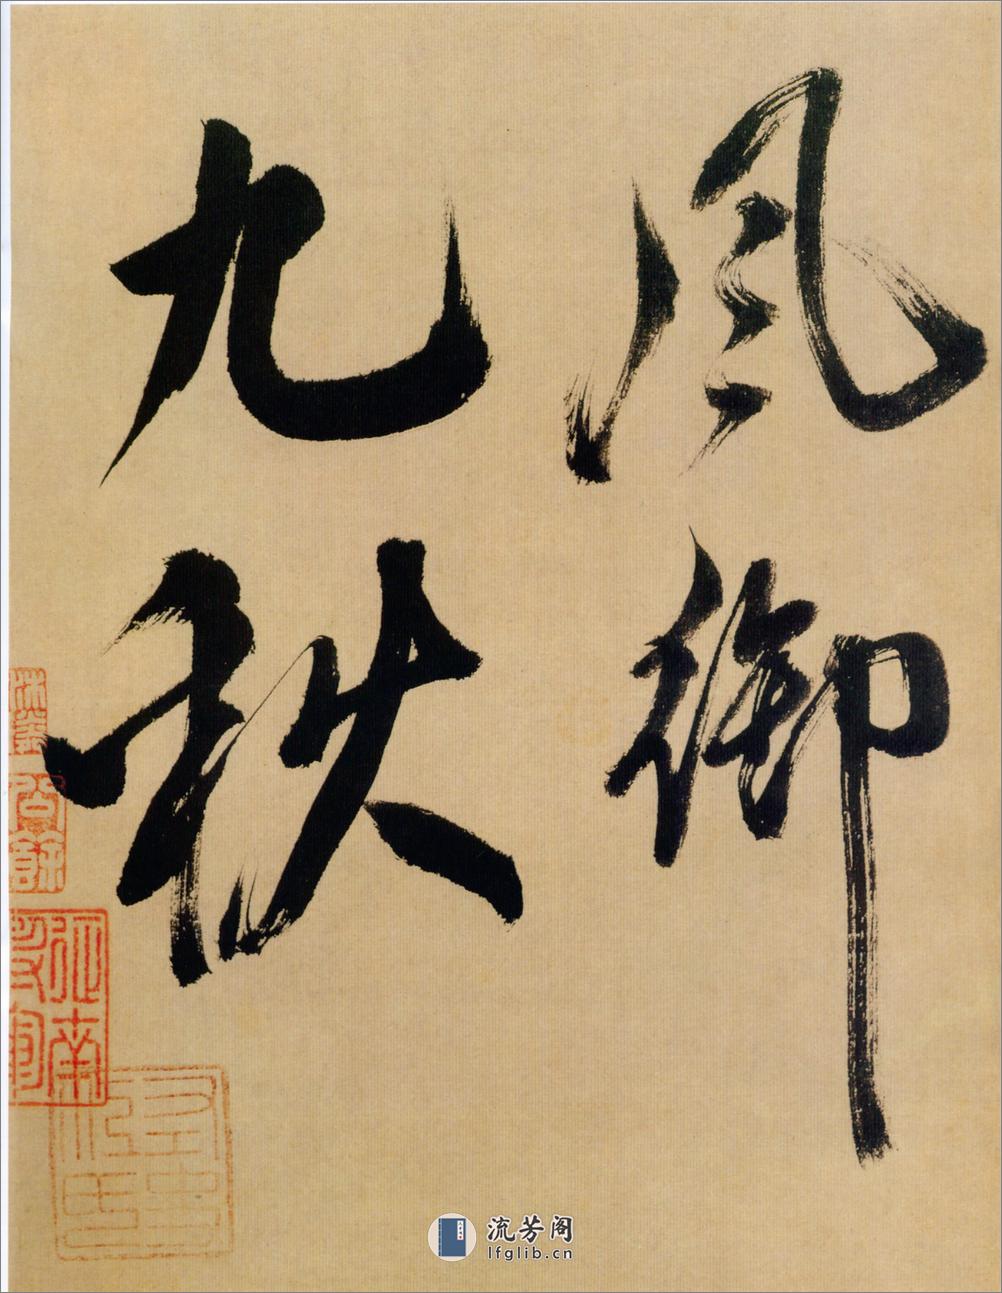 風御
九秋
流芳阁
lfglib.cn